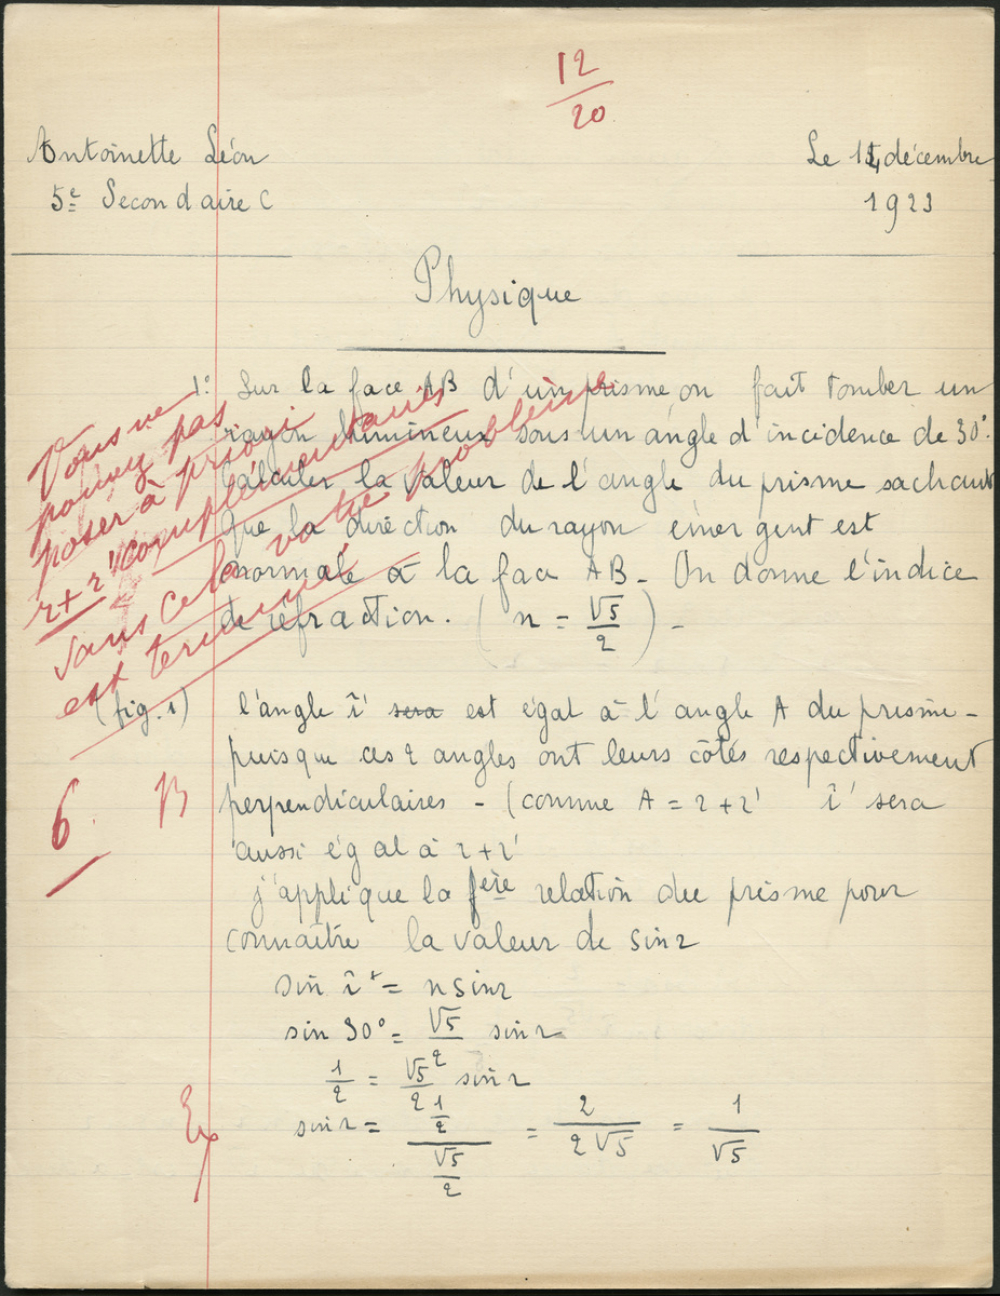 12
20
Antoinette Léon
Le 14 décembre
5e Secondaire C
1923
Physique
1° Sur la face AB d'un prisme on fait tomber un
rayon lumineux sous un angle d'incidence de 30°.
Calculer la valeur de l'angle du prisme sachant
que la direction du rayon émergent est
normale à la face AB - On donne l'indice
de réfraction. ( n = √5/2 ) -
Vous ne
pouvez pas
poser à priori
r + r' complémentaires
sans cela votre problème
est terminé
(fig. 1) l'angle î' sera est égal à l'angle A du prisme -
puisque ces 2 angles ont leurs côtés respectivement
perpendiculaires - (comme A = r + r' î' sera
aussi égal à r + r'
6 B
j'applique la 1ère relation du prisme pour
connaître la valeur de sin r
sin î = n sin r
sin 30° = √5/2 sin r
1/2 = √5/2 sin r
sin r = 1/2 / √5/2 = 2/2√5 = 1/√5